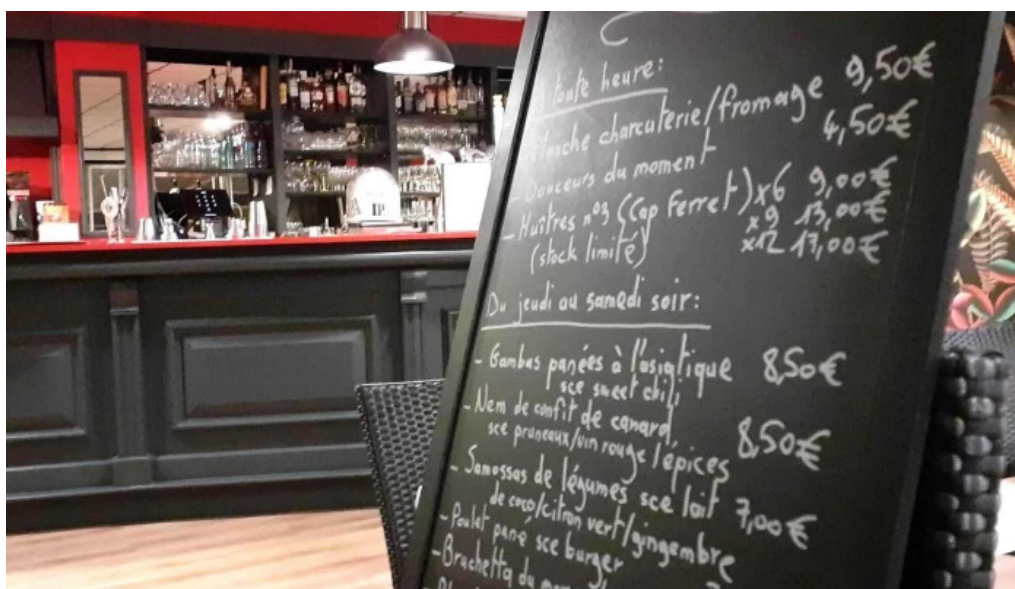 toute heure:
Planche charcuterie/fromage 9,50€
- Douceurs du moment 4,50€
- Huîtres n°3 (Cap Ferret) x6 9,00€
x9 13,00€
(stock limité) x12 17,00€
Du jeudi au samedi soir:
- Gambas panées à l'asiatique 8,50€
sce sweet chili
- Nem de confit de canard 8,50€
sce pruneaux/vin rouge/épices
- Samossas de légumes sce lait 7,00€
de coco/citron vert/gingembre
- Poulet pané sce burger
- Bruchetta du
IP